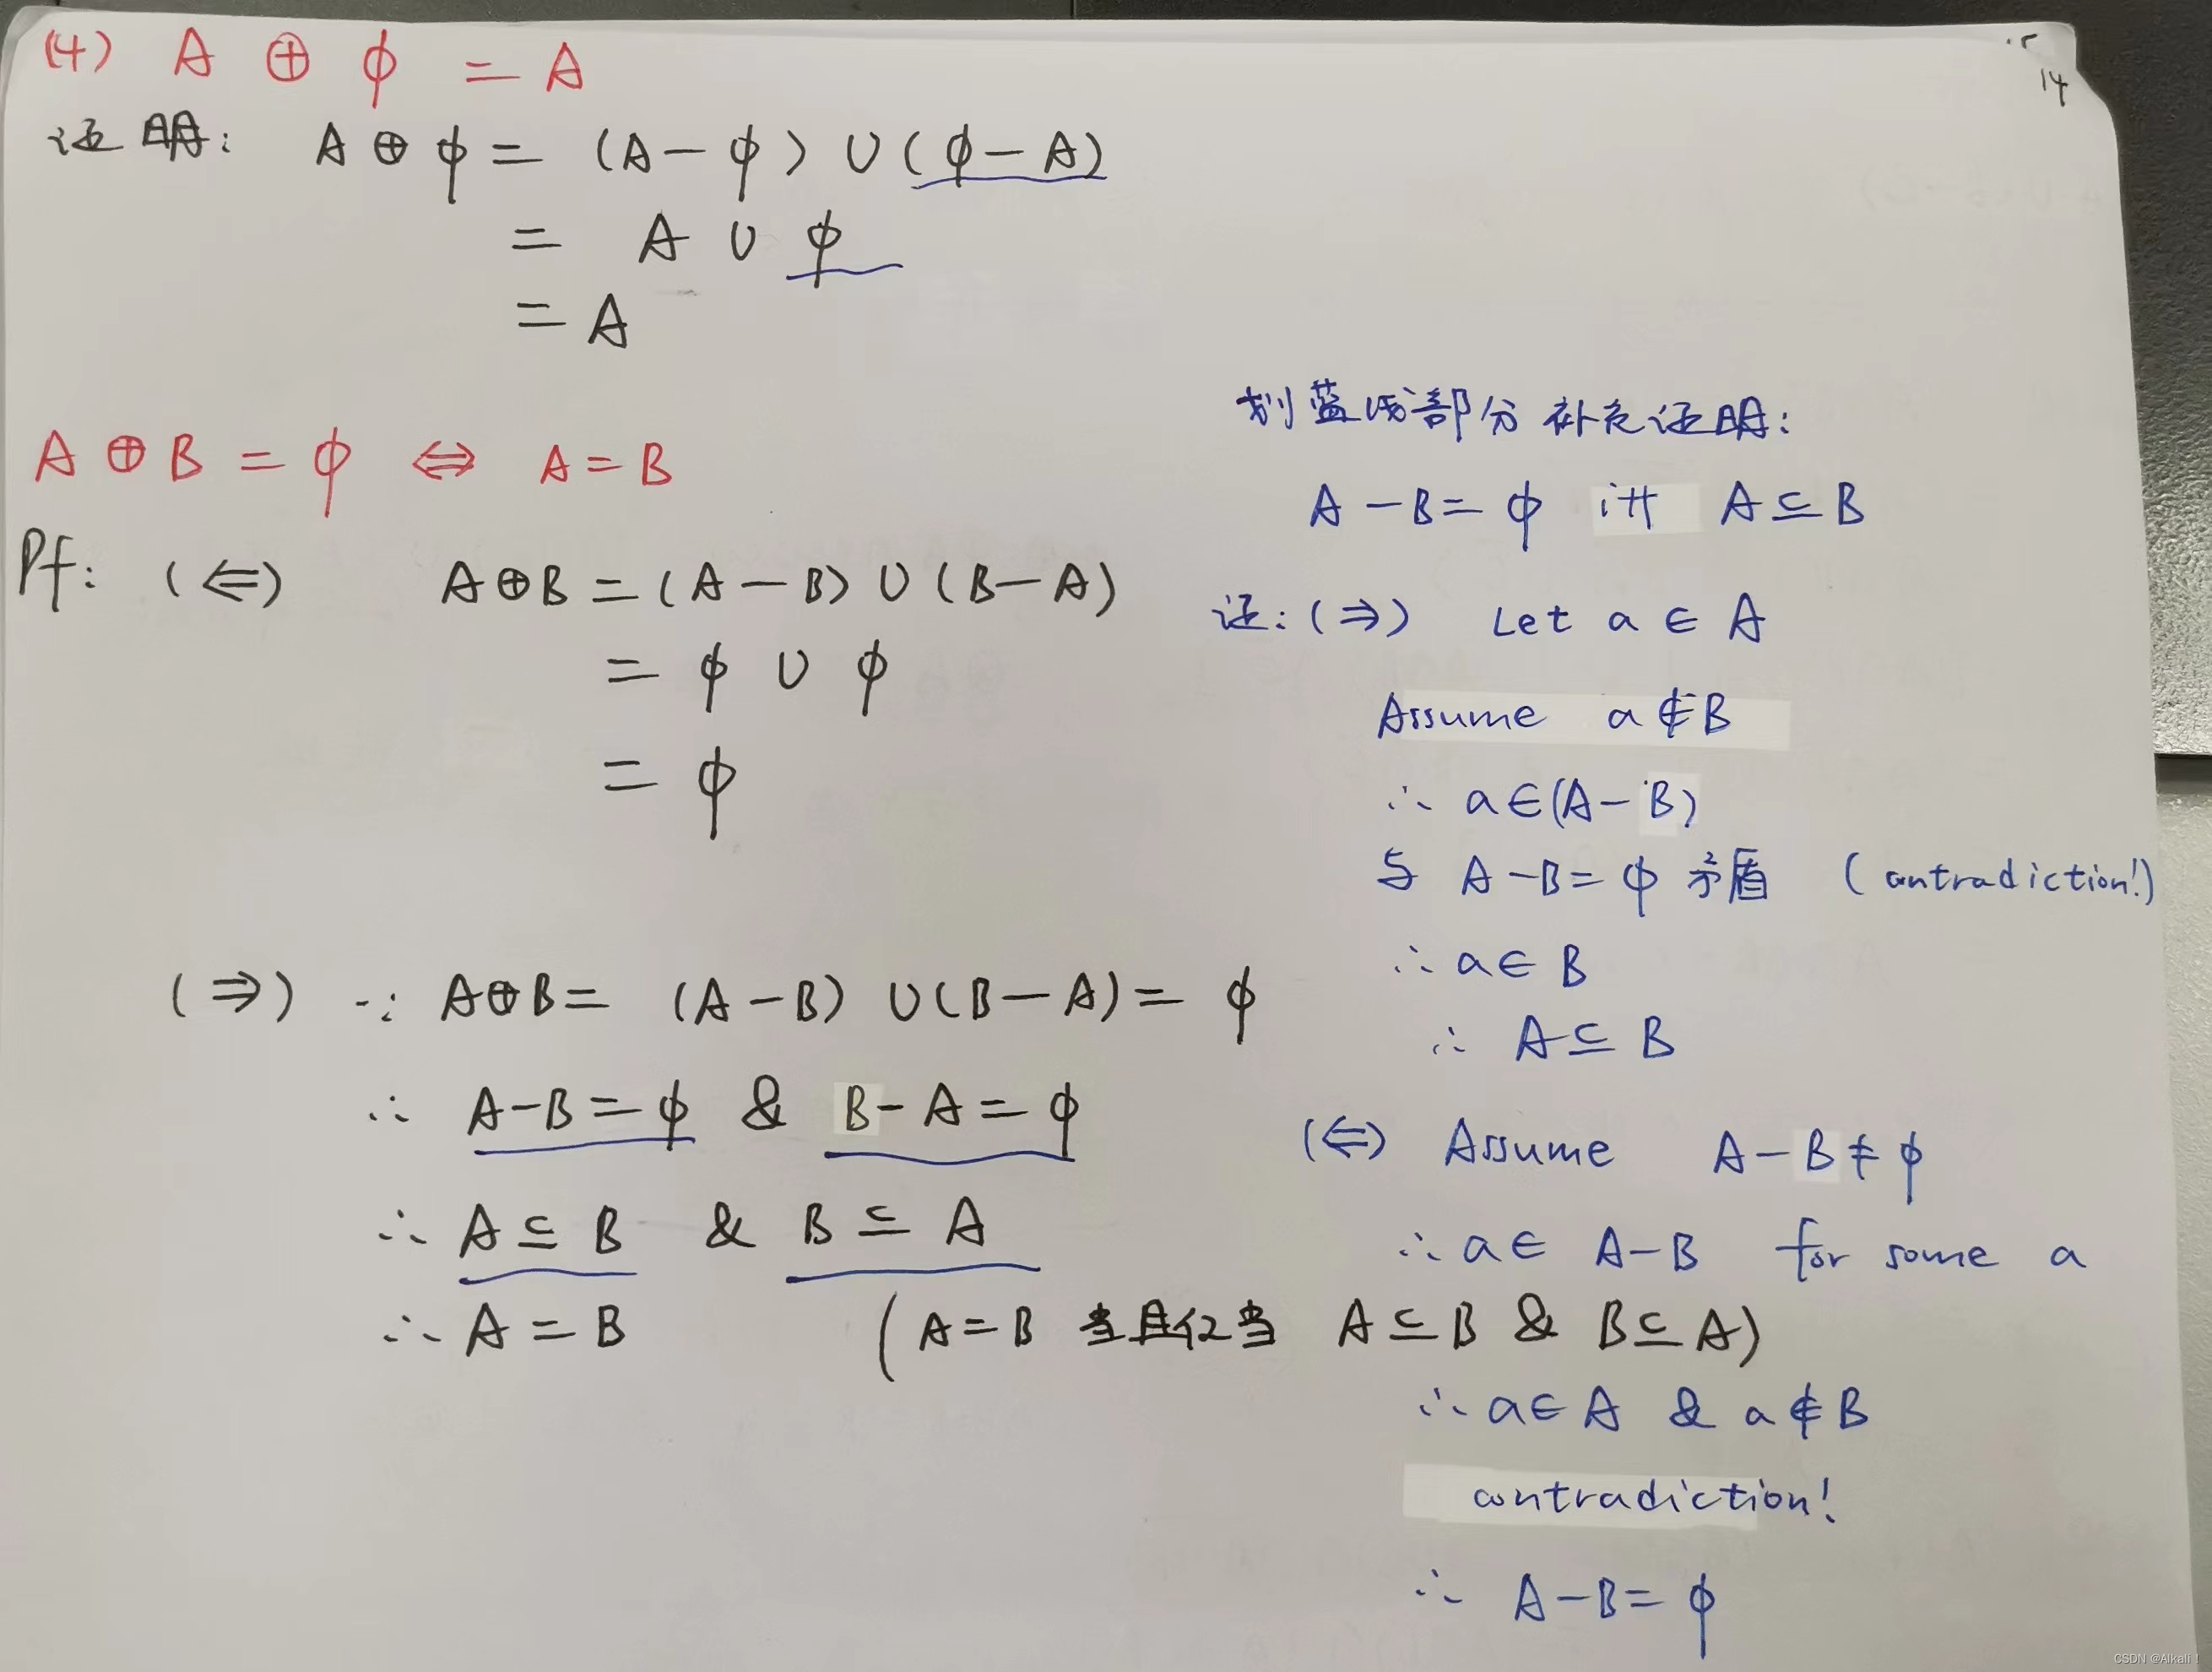 (4) A ⊕ ϕ = A
14
证明: A ⊕ ϕ = (A - ϕ) ∪ (ϕ - A)
= A ∪ ϕ
= A
A ⊕ B = ϕ ⇔ A = B
Pf: (⇐) A⊕B = (A - B) ∪ (B - A)
= ϕ ∪ ϕ
= ϕ
(⇒) ∵ A⊕B = (A - B) ∪ (B - A) = ϕ
∴ A-B = ϕ & B-A = ϕ
∴ A ⊆ B & B ⊆ A
∴ A = B (A=B 当且仅当 A⊆B & B⊆A)
划蓝线部分补充证明:
A - B = ϕ iff A ⊆ B
证: (⇒) Let a ∈ A
Assume a ∉ B
∴ a∈(A-B)
与 A-B=ϕ 矛盾 (contradiction!)
∴ a ∈ B
∴ A ⊆ B
(⇐) Assume A-B ≠ ϕ
∴ a∈ A-B for some a
∴ a∈ A & a ∉ B
contradiction!
∴ A-B = ϕ
CSDN @Alkali！